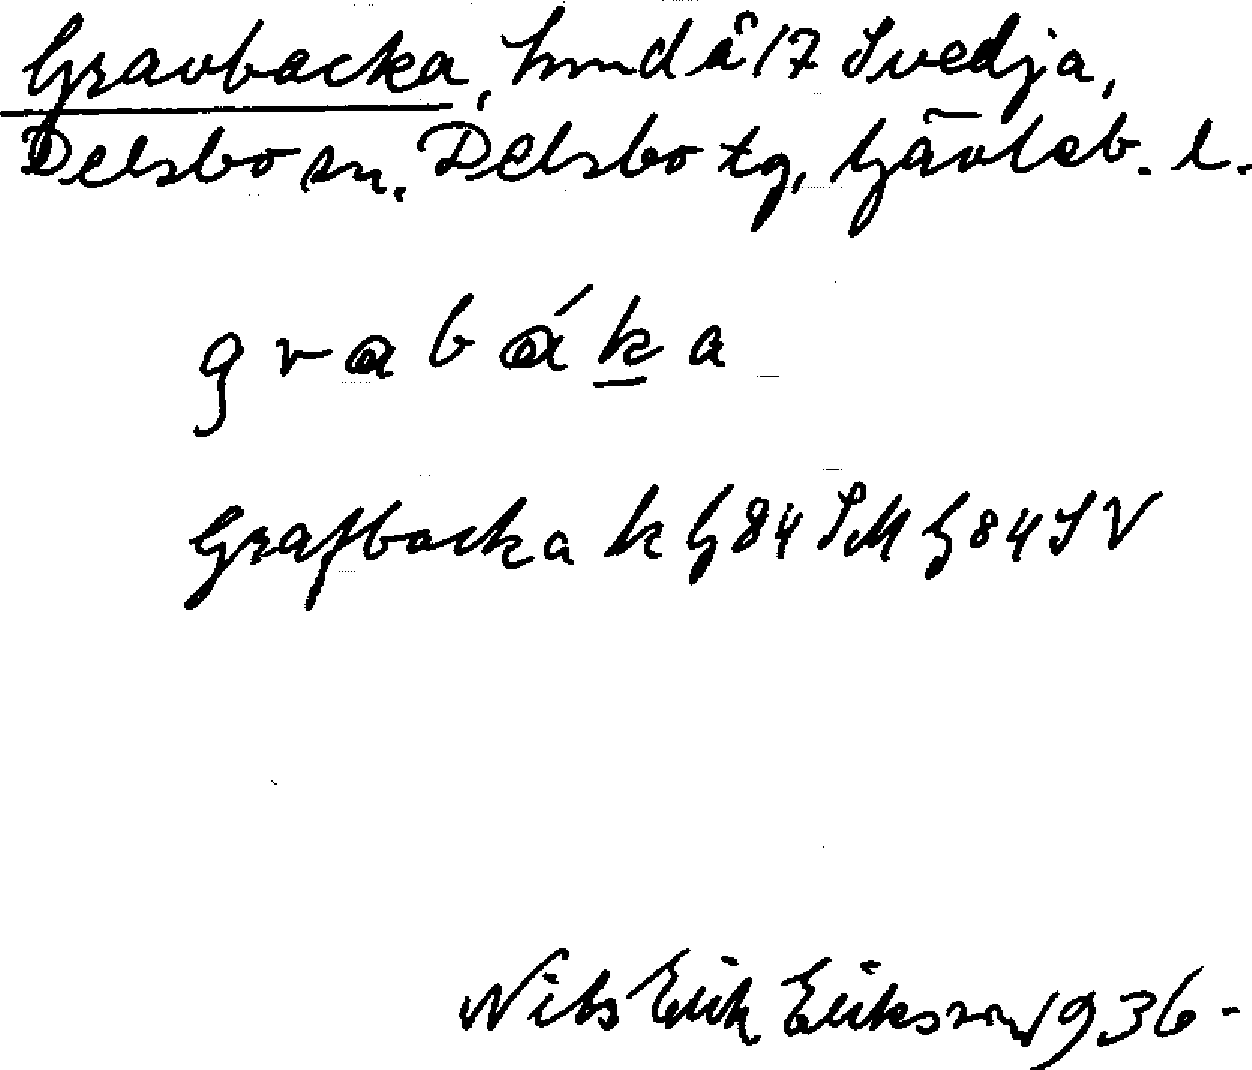 Gravbacka, hmd å 17 Svedja,
Delsbo sn. Delsbo tg, Gävleb. l.
grabák̲a
Grafbacka k G84 SM G84 SV
Nils Erik Eriksson 1936-